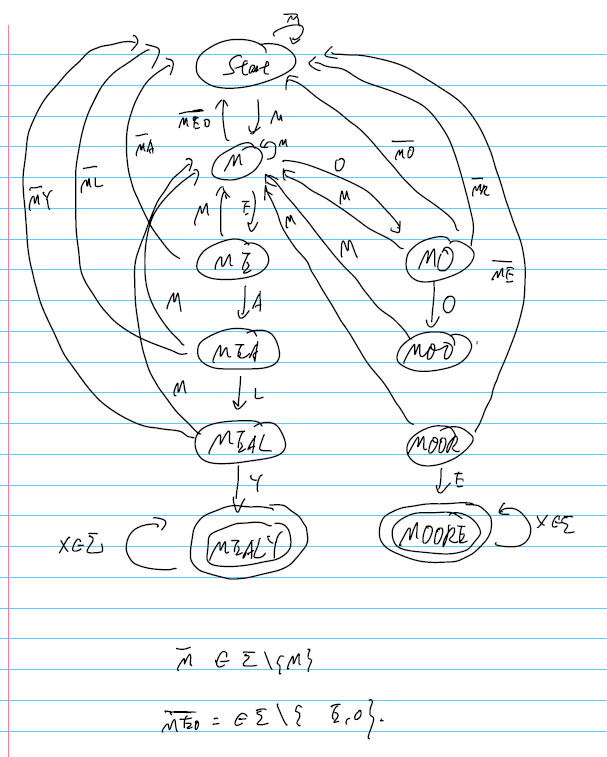 M̅
Start
M̅E̅O̅ M
M̅A̅ M M
M̅L̅ O M̅O̅
M̅Y̅ M M̅R̅
M E M M
ME MO M̅E̅
M A O
MEA MOO
M L
MEAL MOOR
Y E
X∈Σ MEALY MOORE X∈Σ
M̅ ∈ Σ\{M}
M̅E̅O̅ = ∈ Σ\{ E,O}.